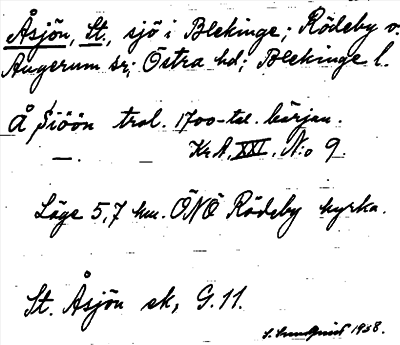 Åsjön, St., sjö i Blekinge; Rödeby o.
Augerum sn; Östra hd; Blekinge l.
Å Siöön trol. 1700-tal. början.
— . — KrA, XXI. N:o 9.
Läge 5,7 km. ÖNÖ Rödeby kyrka.
St. Åsjön ek, G. 11.
S. Sundqvist 1958.